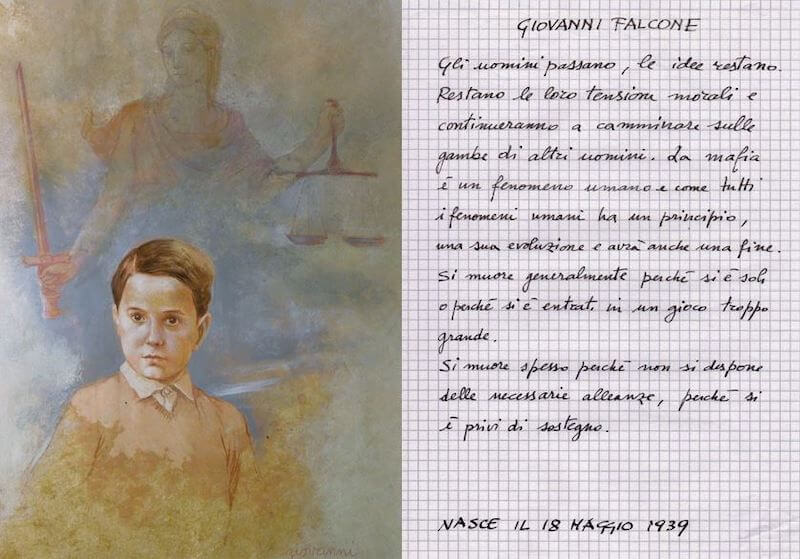 GIOVANNI FALCONE
Gli uomini passano, le idee restano.
Restano le loro tensioni morali e
continueranno a camminare sulle
gambe di altri uomini. La mafia
è un fenomeno umano e come tutti
i fenomeni umani ha un principio,
una sua evoluzione e avrà anche una fine.
Si muore generalmente perché si è soli
o perché si è entrati in un gioco troppo
grande.
Si muore spesso perché non si dispone
delle necessarie alleanze, perché si
è privi di sostegno.
NASCE IL 18 MAGGIO 1939
giovanni